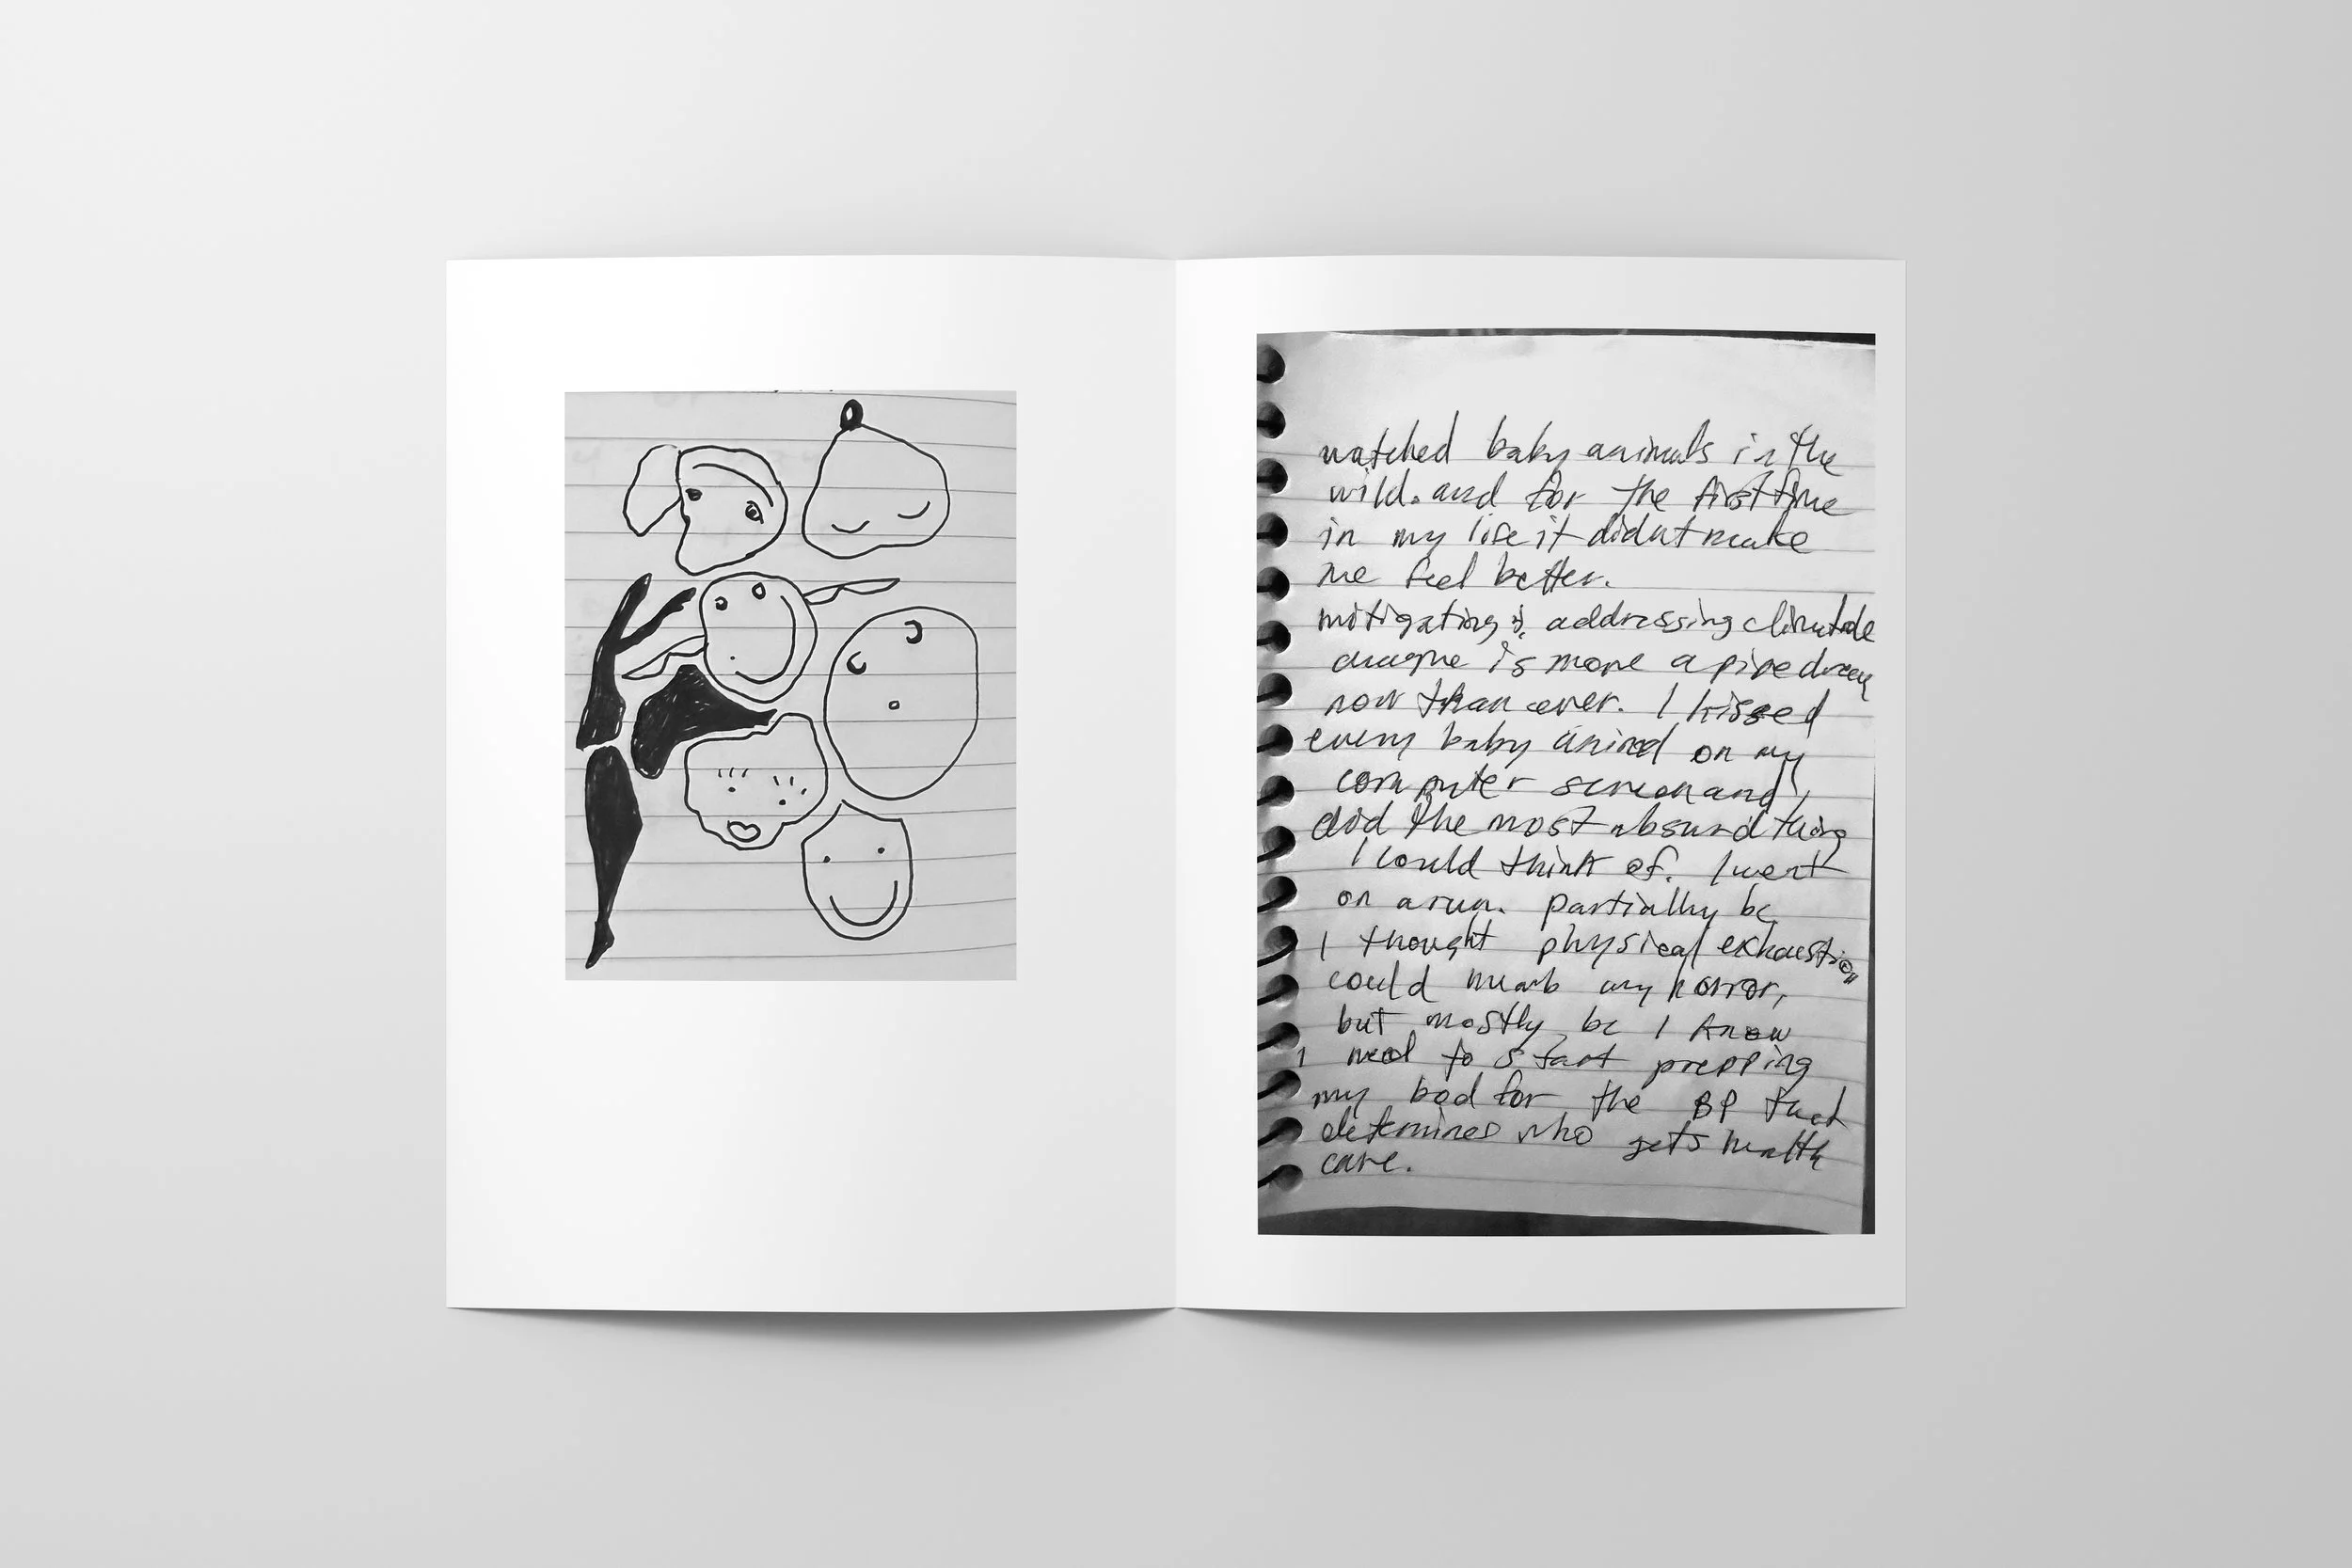 watched baby animals in the
wild. and for the first time
in my life it didnt make
me feel better.
mitigating & addressing climate
change is more a pipe dream
now than ever. I kissed
every baby animal on my
computer screen and
did the most absurd thing
I could think of. I went
on a run. partially bc
I thought physical exhaustion
could numb my horror,
but mostly bc I know
I need to start prepping
my bod for the BP that
determines who gets health
care.